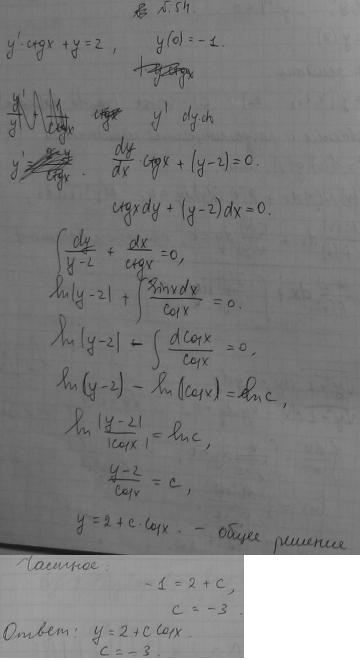 № 5.54.
y'·ctgx + y = 2, y(0) = -1.
y' dy.ch
dy/dx · ctgx + (y-2) = 0.
ctgx dy + (y-2) dx = 0.
∫ dy/(y-2) + dx/ctgx = 0,
ln|y-2| + ∫ sinx dx/cosx = 0.
ln|y-2| - ∫ dcosx/cosx = 0,
ln(y-2) - ln(cosx) = ln c,
ln |y-2|/|cosx| = ln c,
(y-2)/cosx = c,
y = 2 + c·cosx. - общее решение
Частное:
-1 = 2 + c,
c = -3.
Ответ: y = 2 + c cosx.
c = -3.